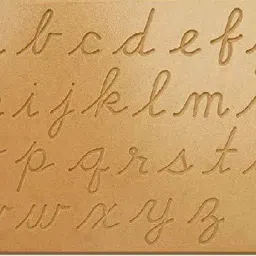 a b c d e f
i j k l m
p q r s t
v w x y z